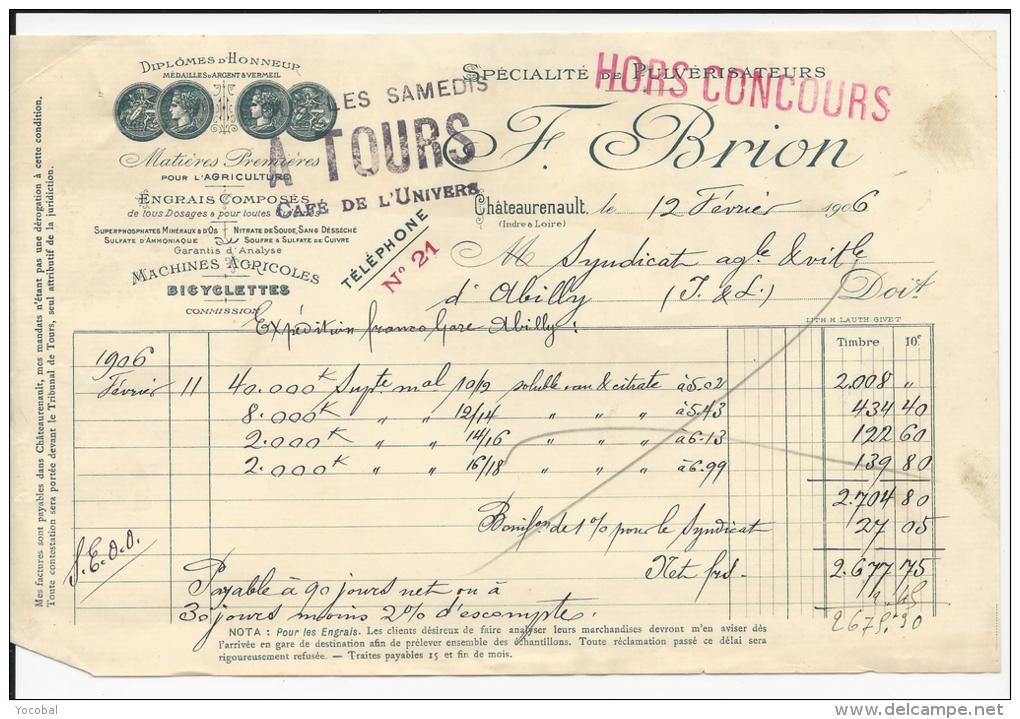 DIPLÔMES D'HONNEUR
MÉDAILLES D'ARGENT & VERMEIL
LES SAMEDIS
A TOURS
CAFÉ DE L'UNIVERS
SPÉCIALITÉ DE PULVÉRISATEURS
HORS CONCOURS
F. Brion
Matières Premières
POUR L'AGRICULTURE
ENGRAIS COMPOSÉS
de tous Dosages & pour toutes
SUPERPHOSPHATES MINÉRAUX & D'OS
SULFATE D'AMMONIAQUE
NITRATE DE SOUDE, SANG DÉSSÉCHÉ
SOUFRE & SULFATE DE CUIVRE
Garantis d'Analyse
MACHINES AGRICOLES
BICYCLETTES
COMMISSION
TÉLÉPHONE
No 21
Châteaurenault, le 12 Février 1906
(Indre & Loire)
M Syndicat agle & vitle
d'Abilly (I. & L.) Doit
LITH. H. LAUTH. GIVET
Expédition franco Gare Abilly :
Timbre 10c
1906
Février 11 40.000K Supte mal 10/12 soluble eau & citrate à 5.02 2.008 "
8.000K " " 12/14 " " à 5.43 434 40
2.000K " " 14/16 " " à 6.13 122 60
2.000K " " 16/18 " " à 6.99 139 80
2.704 80
Bonifon de 1% pour le Syndicat 27 05
Net frs. 2.677 75
S.E.O.O.
Payable à 90 jours net ou à
30 jours moins 2% d'escompte.
NOTA : Pour les Engrais. Les clients désireux de faire analyser leurs marchandises devront m'en aviser dès
l'arrivée en gare de destination afin de prélever ensemble des échantillons. Toute réclamation passé ce délai sera
rigoureusement refusée. — Traites payables 15 et fin de mois.
Mes factures sont payables dans Châteaurenault, mes mandats n'étant pas une dérogation à cette condition.
Toute contestation sera portée devant le Tribunal de Tours, seul attributif de la juridiction.
Yocobal
delcampe.net